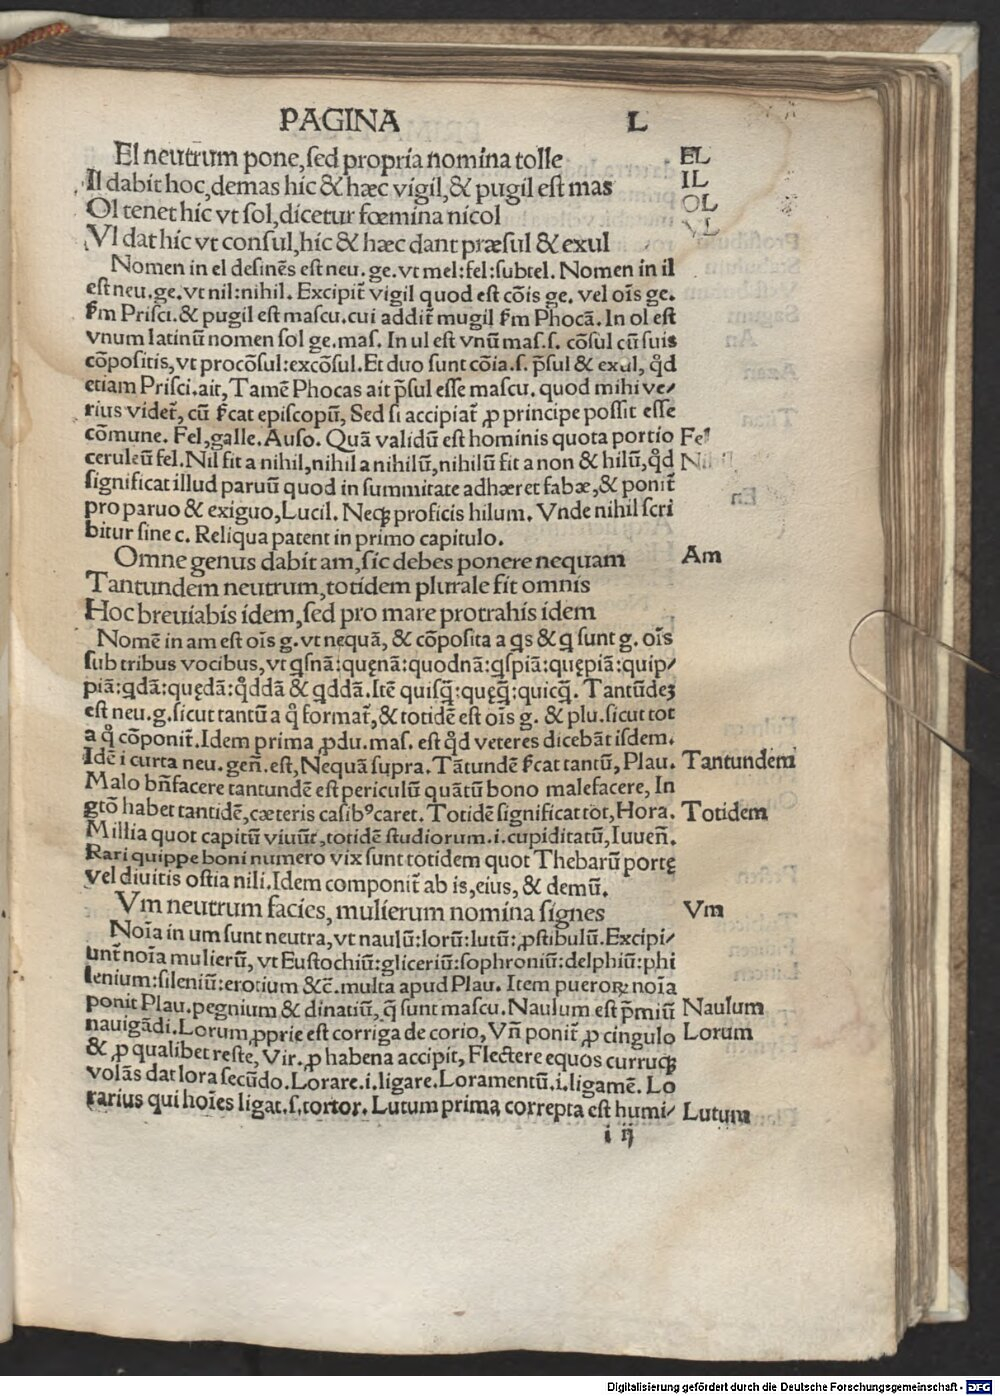 PAGINA L
El neutrum pone, sed propria nomina tolle EL
Il dabit hoc, demas hic & hæc vigil, & pugil est mas IL
Ol tenet hic vt sol, dicetur fœmina nicol OL
Vl dat hic vt consul, hic & hæc dant præsul & exul VL
Nomen in el desinēs est neu. ge. vt mel: fel: subtel. Nomen in il
est neu. ge. vt nil: nihil. Excipit̄ vigil quod est cōis ge. vel oīs ge.
ẜm Prisci. & pugil est mascu. cui addit̄ mugil ẜm Phocā. In ol est
vnum latinū nomen sol ge. mas. In ul est vnū mas. s. cōsul cū suis
cōpositis, vt procōsul: excōsul. Et duo sunt cōia. s. p̄sul & exul, qd̄
etiam Prisci. ait, Tamē Phocas ait p̄sul esse mascu. quod mihi ve⸗
rius videt̄, cū ẜcat episcopū, Sed si accipiat̄ ꝓ principe possit esse
cōmune. Fel, galle. Auso. Quā validū est hominis quota portio Fel
ceruleū fel. Nil fit a nihil, nihil a nihilū, nihilū fit a non & hilū, qd̄ Nihil
significat illud paruū quod in summitate adhæret fabæ, & ponit̄
pro paruo & exiguo, Lucil. Neqꝫ proficis hilum. Vnde nihil scri
bitur sine c. Reliqua patent in primo capitulo.
Omne genus dabit am, sic debes ponere nequam Am
Tantundem neutrum, totidem plurale fit omnis
Hoc breuiabis idem, sed pro mare protrahis idem
Nomē in am est oīs g. vt nequā, & cōposita a qs & q sunt g. oīs
sub tribus vocibus, vt qsnā: quęnā: quodnā: qspiā: quępiā: quip⸗
piā: qdā: quędā: qd̄dā & qddā. Itē quisq̄: quęq̄: quicq̄. Tantūdeꝫ
est neu. g. sicut tantū a q̊ format̄, & totidē est oīs g. & plu. sicut tot
a q̊ cōponit̄. Idem prima ꝓdu. mas. est qd̄ veteres dicebāt isdem.
Idē i curta neu. geñ. est, Nequā supra. Tātundē ẜcat tantū, Plau. Tantundem
Malo bn̄facere tantundē est periculū quātū bono malefacere, In
gtō habet tantidē, cæteris casibꝰ caret. Totidē significat tot, Hora. Totidem
Millia quot capitū viuūt, totidē studiorum. i. cupiditatū, Iuueñ.
Rari quippe boni numero vix sunt totidem quot Thebarū portę
vel diuitis ostia nili. Idem componit̄ ab is, eius, & demū.
Vm neutrum facies, mulierum nomina signes Vm
Noīa in um sunt neutra, vt naulū: lorū: lutū: ꝓstibulū. Excipi⸗
unt̄ noīa mulierū, vt Eustochiū: gliceriū: sophroniū: delphiū: phi
lenium: sileniū: erotium &c̄. multa apud Plau. Item pueroꝝ noīa
ponit Plau. pegnium & dinatiū, q̄ sunt mascu. Naulum est p̄miū Naulum
nauigādi. Lorum ꝓprie est corriga de corio, Vñ ponit̄ ꝓ cingulo Lorum
& ꝓ qualibet reste, Vir. ꝓ habena accipit, Flectere equos curruqꝫ
volās dat lora secūdo. Lorare. i. ligare. Loramentū. i. ligamē. Lo
rarius qui hoīes ligat. s. tortor. Lutum prima correpta est humi⸗ Lutum
i ij
Digitalisierung gefördert durch die Deutsche Forschungsgemeinschaft - DFG